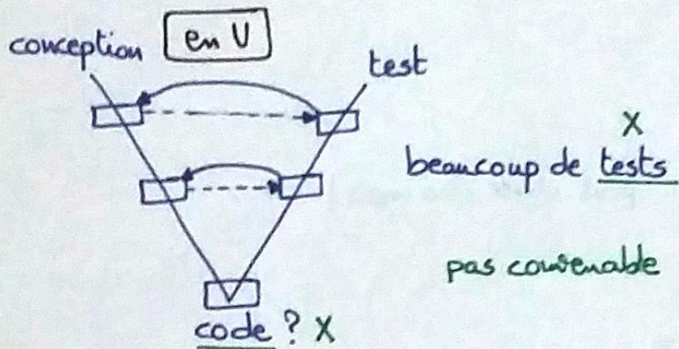 conception
en V
test
X
beaucoup de tests
pas convenable
code ? X